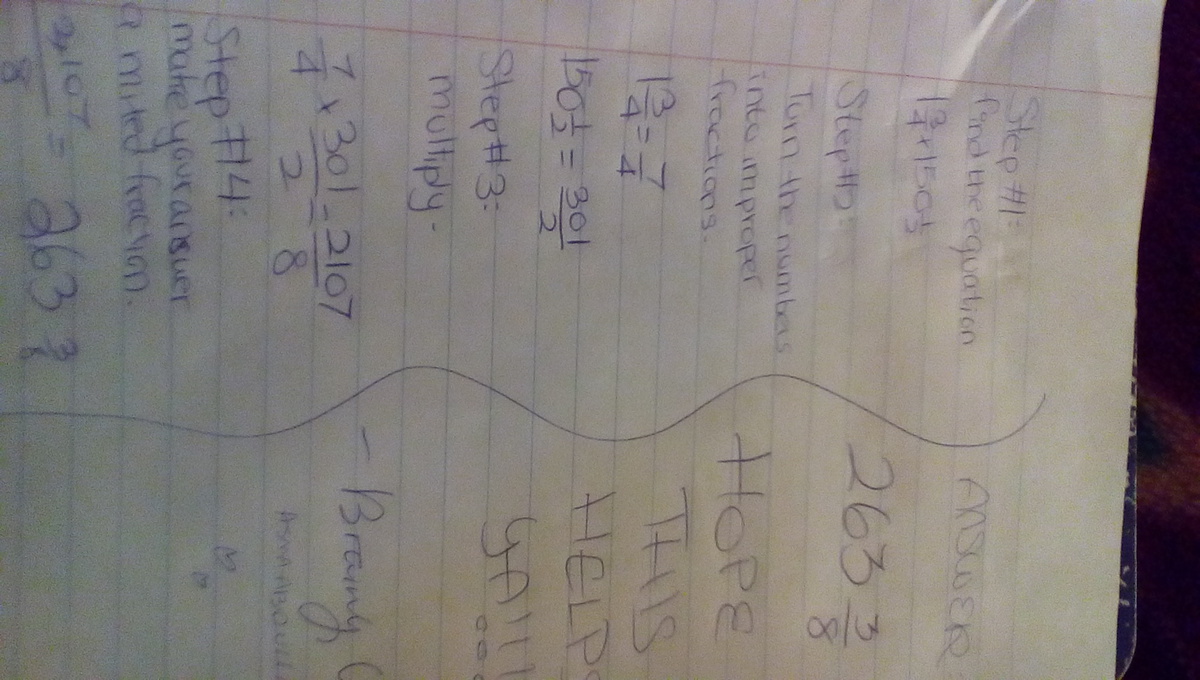 Step #1:
find the equation
1 3/4 x 150 1/2
Step #2:
Turn the numbers
into improper
fractions.
1 3/4 = 7/4
150 1/2 = 301/2
Step #3:
multiply.
7/4 x 301/2 = 2107/8
Step #4:
make your answer
a mixed fraction.
2,107/8 = 263 3/8
ANSWER
263 3/8
HOPE
THIS
HELPS
YA!!!
- Brainy